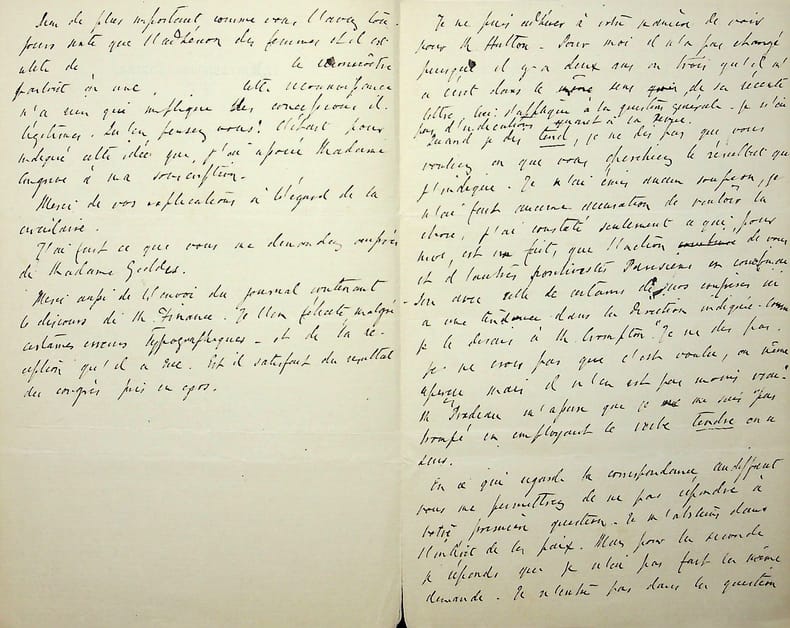 Rien de plus important, comme vous l'avez tou-
jours noté que l'adhésion des femmes et il est
utile de le reconnaître
partout où une , cette reconnaissance
n'a rien qui implique des concessions il-
légitimes. Qu'en pensez vous? C'était pour
indiquer cette idée que, j'ai ajouté Madame
Congreve à ma souscription.
Merci de vos explications à l'égard de la
circulaire.
J'ai fait ce que vous me demandez auprès
de Madame Geddes.
Merci aussi de l'envoi du journal contenant
le discours de M. Finance. Je l'en félicite malgré
certaines erreurs typographiques - et de la ré-
ception qu'il a eue. Est il satisfait du résultat
du congrès pris en gros.
Je ne puis adhérer à votre manière de voir
pour M. Hutton - Pour moi il n'a pas changé
puisque il y a deux ans ou trois qu'il m'
a écrit dans le même sens de sa récente
lettre, ceci s'applique à la question générale. je n'ai
pas d'indications quant à la Revue.
Quand je dis tend, je ne dis pas que vous
vouliez ou que vous cherchiez le résultat que
j'indique. Je n'ai émis aucun soupçon, je
n'ai fait aucune accusation de vouloir la
chose, j'ai constaté seulement ce qui, pour
moi, est un fait, que l'action de vous
et d'autres positivistes Parisiens en
avec celle de certains de nos confrères ici
a une tendance dans la direction indiquée. Comme
je le disais à M. Crompton "Je ne dis pas.
je ne crois pas que c'est voulu, ou même
aperçu mais il n'en est pas moins vrai."
M. Pradeau m'assure que je ne me suis pas
trompé en employant le verbe tendre en ce
sens.
En ce qui regarde la correspondance Audiffrent
vous me permettrez de ne pas répondre à
votre première question. Je m'abstiens dans
l'intérêt de la paix. Mais pour la seconde
je réponds que je n'ai pas fait la même
demande. Je n'entre pas dans la question